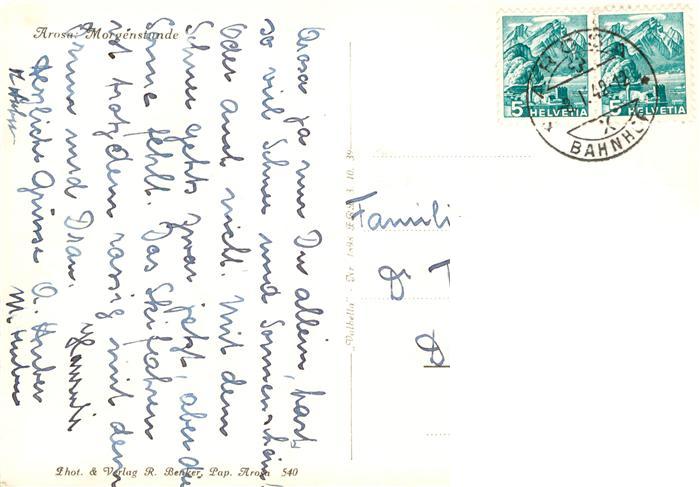 Arosa: Morgenstunde
Arosa ja nur Du allein hast
so viel Schnee und Sonnenschein
Oder auch nicht. Mit dem
Schnee gehts zwar jetzt, aber die
Sonne fehlt. Das Skifahren
ist trotzdem rassig mit dem
und Dran.
Herzliche Grüsse O. Huber
M. Huber
Phot. & Verlag R. Benker, Pap. Arosa 540
„Valbella" - Nr. 1898 3. 10. 39
5 HELVETIA
5 HELVETIA
AROSA
42-12
BAHNHOF
Famili
Dr
D